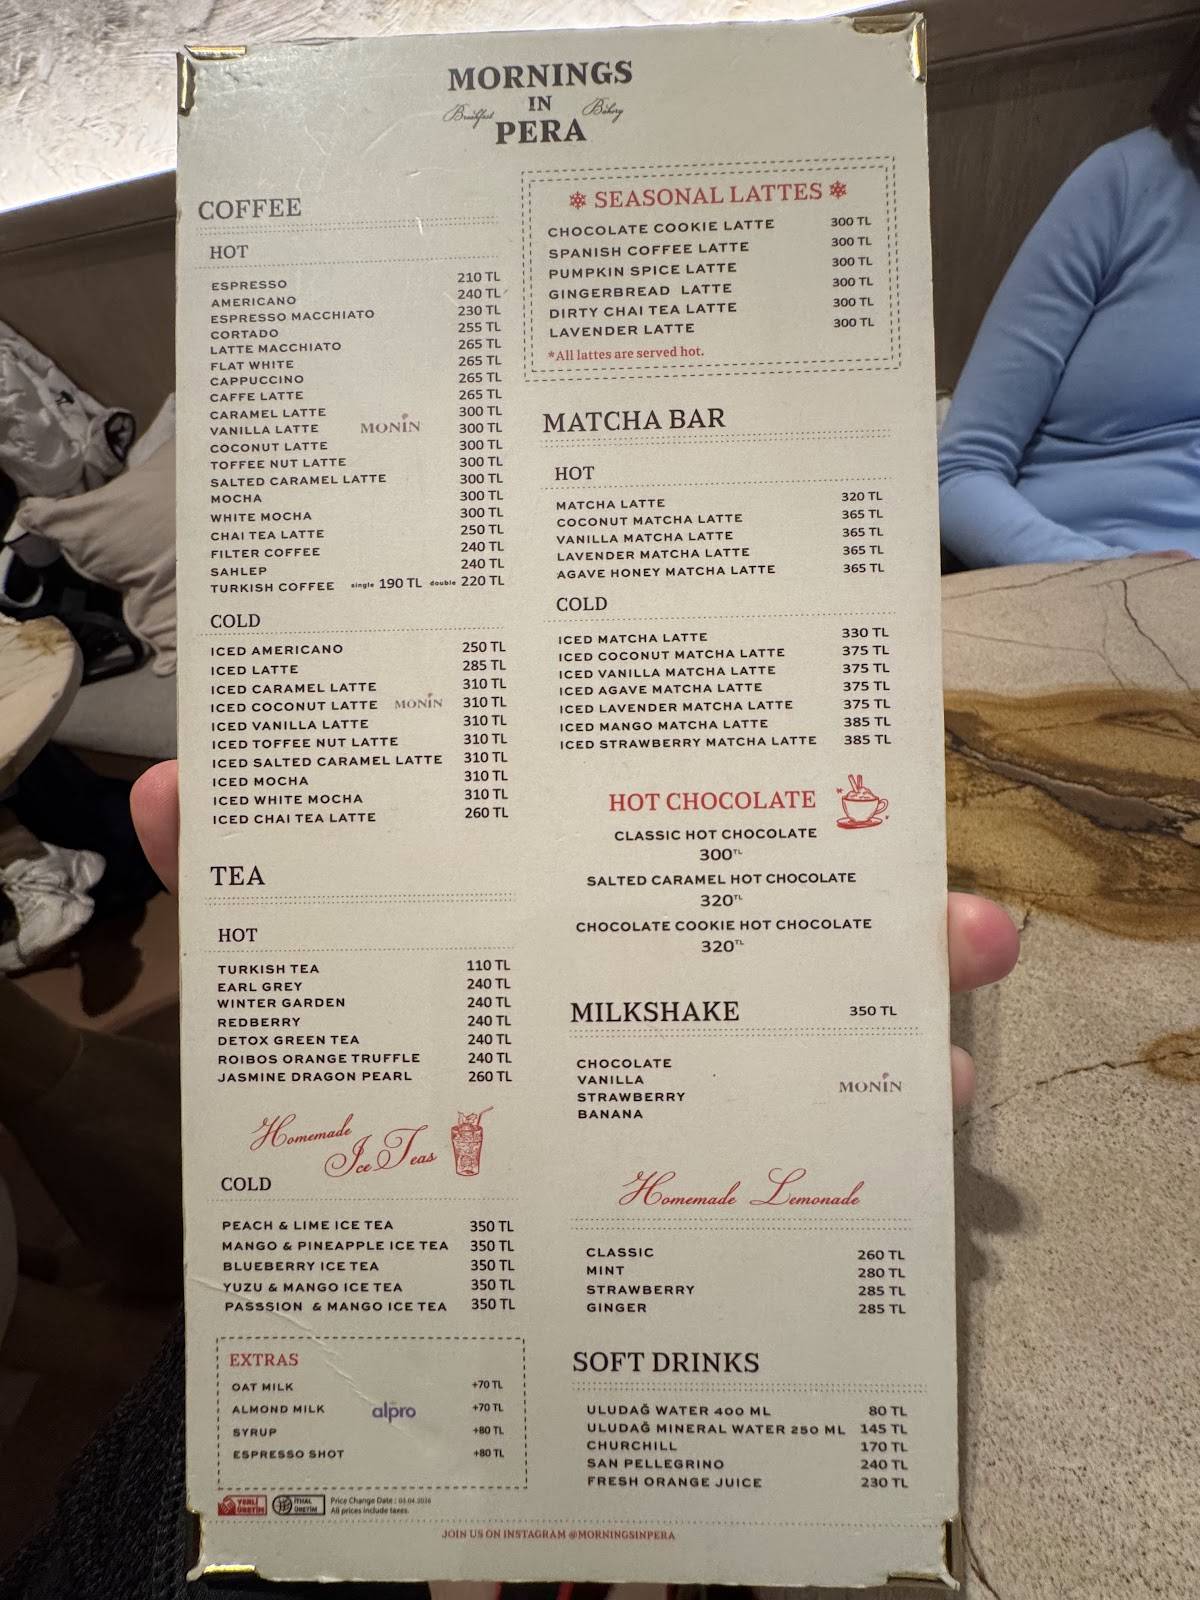 MORNINGS
IN
Breakfast Bakery
PERA
COFFEE
HOT
ESPRESSO 210 TL
AMERICANO 240 TL
ESPRESSO MACCHIATO 230 TL
CORTADO 255 TL
LATTE MACCHIATO 265 TL
FLAT WHITE 265 TL
CAPPUCCINO 265 TL
CAFFE LATTE 265 TL
CARAMEL LATTE 300 TL
VANILLA LATTE MONIN 300 TL
COCONUT LATTE 300 TL
TOFFEE NUT LATTE 300 TL
SALTED CARAMEL LATTE 300 TL
MOCHA 300 TL
WHITE MOCHA 300 TL
CHAI TEA LATTE 250 TL
FILTER COFFEE 240 TL
SAHLEP 240 TL
TURKISH COFFEE single 190 TL double 220 TL
COLD
ICED AMERICANO 250 TL
ICED LATTE 285 TL
ICED CARAMEL LATTE 310 TL
ICED COCONUT LATTE MONIN 310 TL
ICED VANILLA LATTE 310 TL
ICED TOFFEE NUT LATTE 310 TL
ICED SALTED CARAMEL LATTE 310 TL
ICED MOCHA 310 TL
ICED WHITE MOCHA 310 TL
ICED CHAI TEA LATTE 260 TL
TEA
HOT
TURKISH TEA 110 TL
EARL GREY 240 TL
WINTER GARDEN 240 TL
REDBERRY 240 TL
DETOX GREEN TEA 240 TL
ROIBOS ORANGE TRUFFLE 240 TL
JASMINE DRAGON PEARL 260 TL
Homemade
Ice Teas
COLD
PEACH & LIME ICE TEA 350 TL
MANGO & PINEAPPLE ICE TEA 350 TL
BLUEBERRY ICE TEA 350 TL
YUZU & MANGO ICE TEA 350 TL
PASSSION & MANGO ICE TEA 350 TL
EXTRAS
OAT MILK +70 TL
ALMOND MILK alpro +70 TL
SYRUP +80 TL
ESPRESSO SHOT +80 TL
YERLİ ÜRETİM
İTHAL ÜRETİM
Price Change Date : 03.04.2026
All prices include taxes.
SEASONAL LATTES
CHOCOLATE COOKIE LATTE 300 TL
SPANISH COFFEE LATTE 300 TL
PUMPKIN SPICE LATTE 300 TL
GINGERBREAD LATTE 300 TL
DIRTY CHAI TEA LATTE 300 TL
LAVENDER LATTE 300 TL
*All lattes are served hot.
MATCHA BAR
HOT
MATCHA LATTE 320 TL
COCONUT MATCHA LATTE 365 TL
VANILLA MATCHA LATTE 365 TL
LAVENDER MATCHA LATTE 365 TL
AGAVE HONEY MATCHA LATTE 365 TL
COLD
ICED MATCHA LATTE 330 TL
ICED COCONUT MATCHA LATTE 375 TL
ICED VANILLA MATCHA LATTE 375 TL
ICED AGAVE MATCHA LATTE 375 TL
ICED LAVENDER MATCHA LATTE 375 TL
ICED MANGO MATCHA LATTE 385 TL
ICED STRAWBERRY MATCHA LATTE 385 TL
HOT CHOCOLATE
CLASSIC HOT CHOCOLATE
300TL
SALTED CARAMEL HOT CHOCOLATE
320TL
CHOCOLATE COOKIE HOT CHOCOLATE
320TL
MILKSHAKE 350 TL
CHOCOLATE
VANILLA MONIN
STRAWBERRY
BANANA
Homemade Lemonade
CLASSIC 260 TL
MINT 280 TL
STRAWBERRY 285 TL
GINGER 285 TL
SOFT DRINKS
ULUDAĞ WATER 400 ML 80 TL
ULUDAĞ MINERAL WATER 250 ML 145 TL
CHURCHILL 170 TL
SAN PELLEGRINO 240 TL
FRESH ORANGE JUICE 230 TL
JOIN US ON INSTAGRAM @MORNINGSINPERA